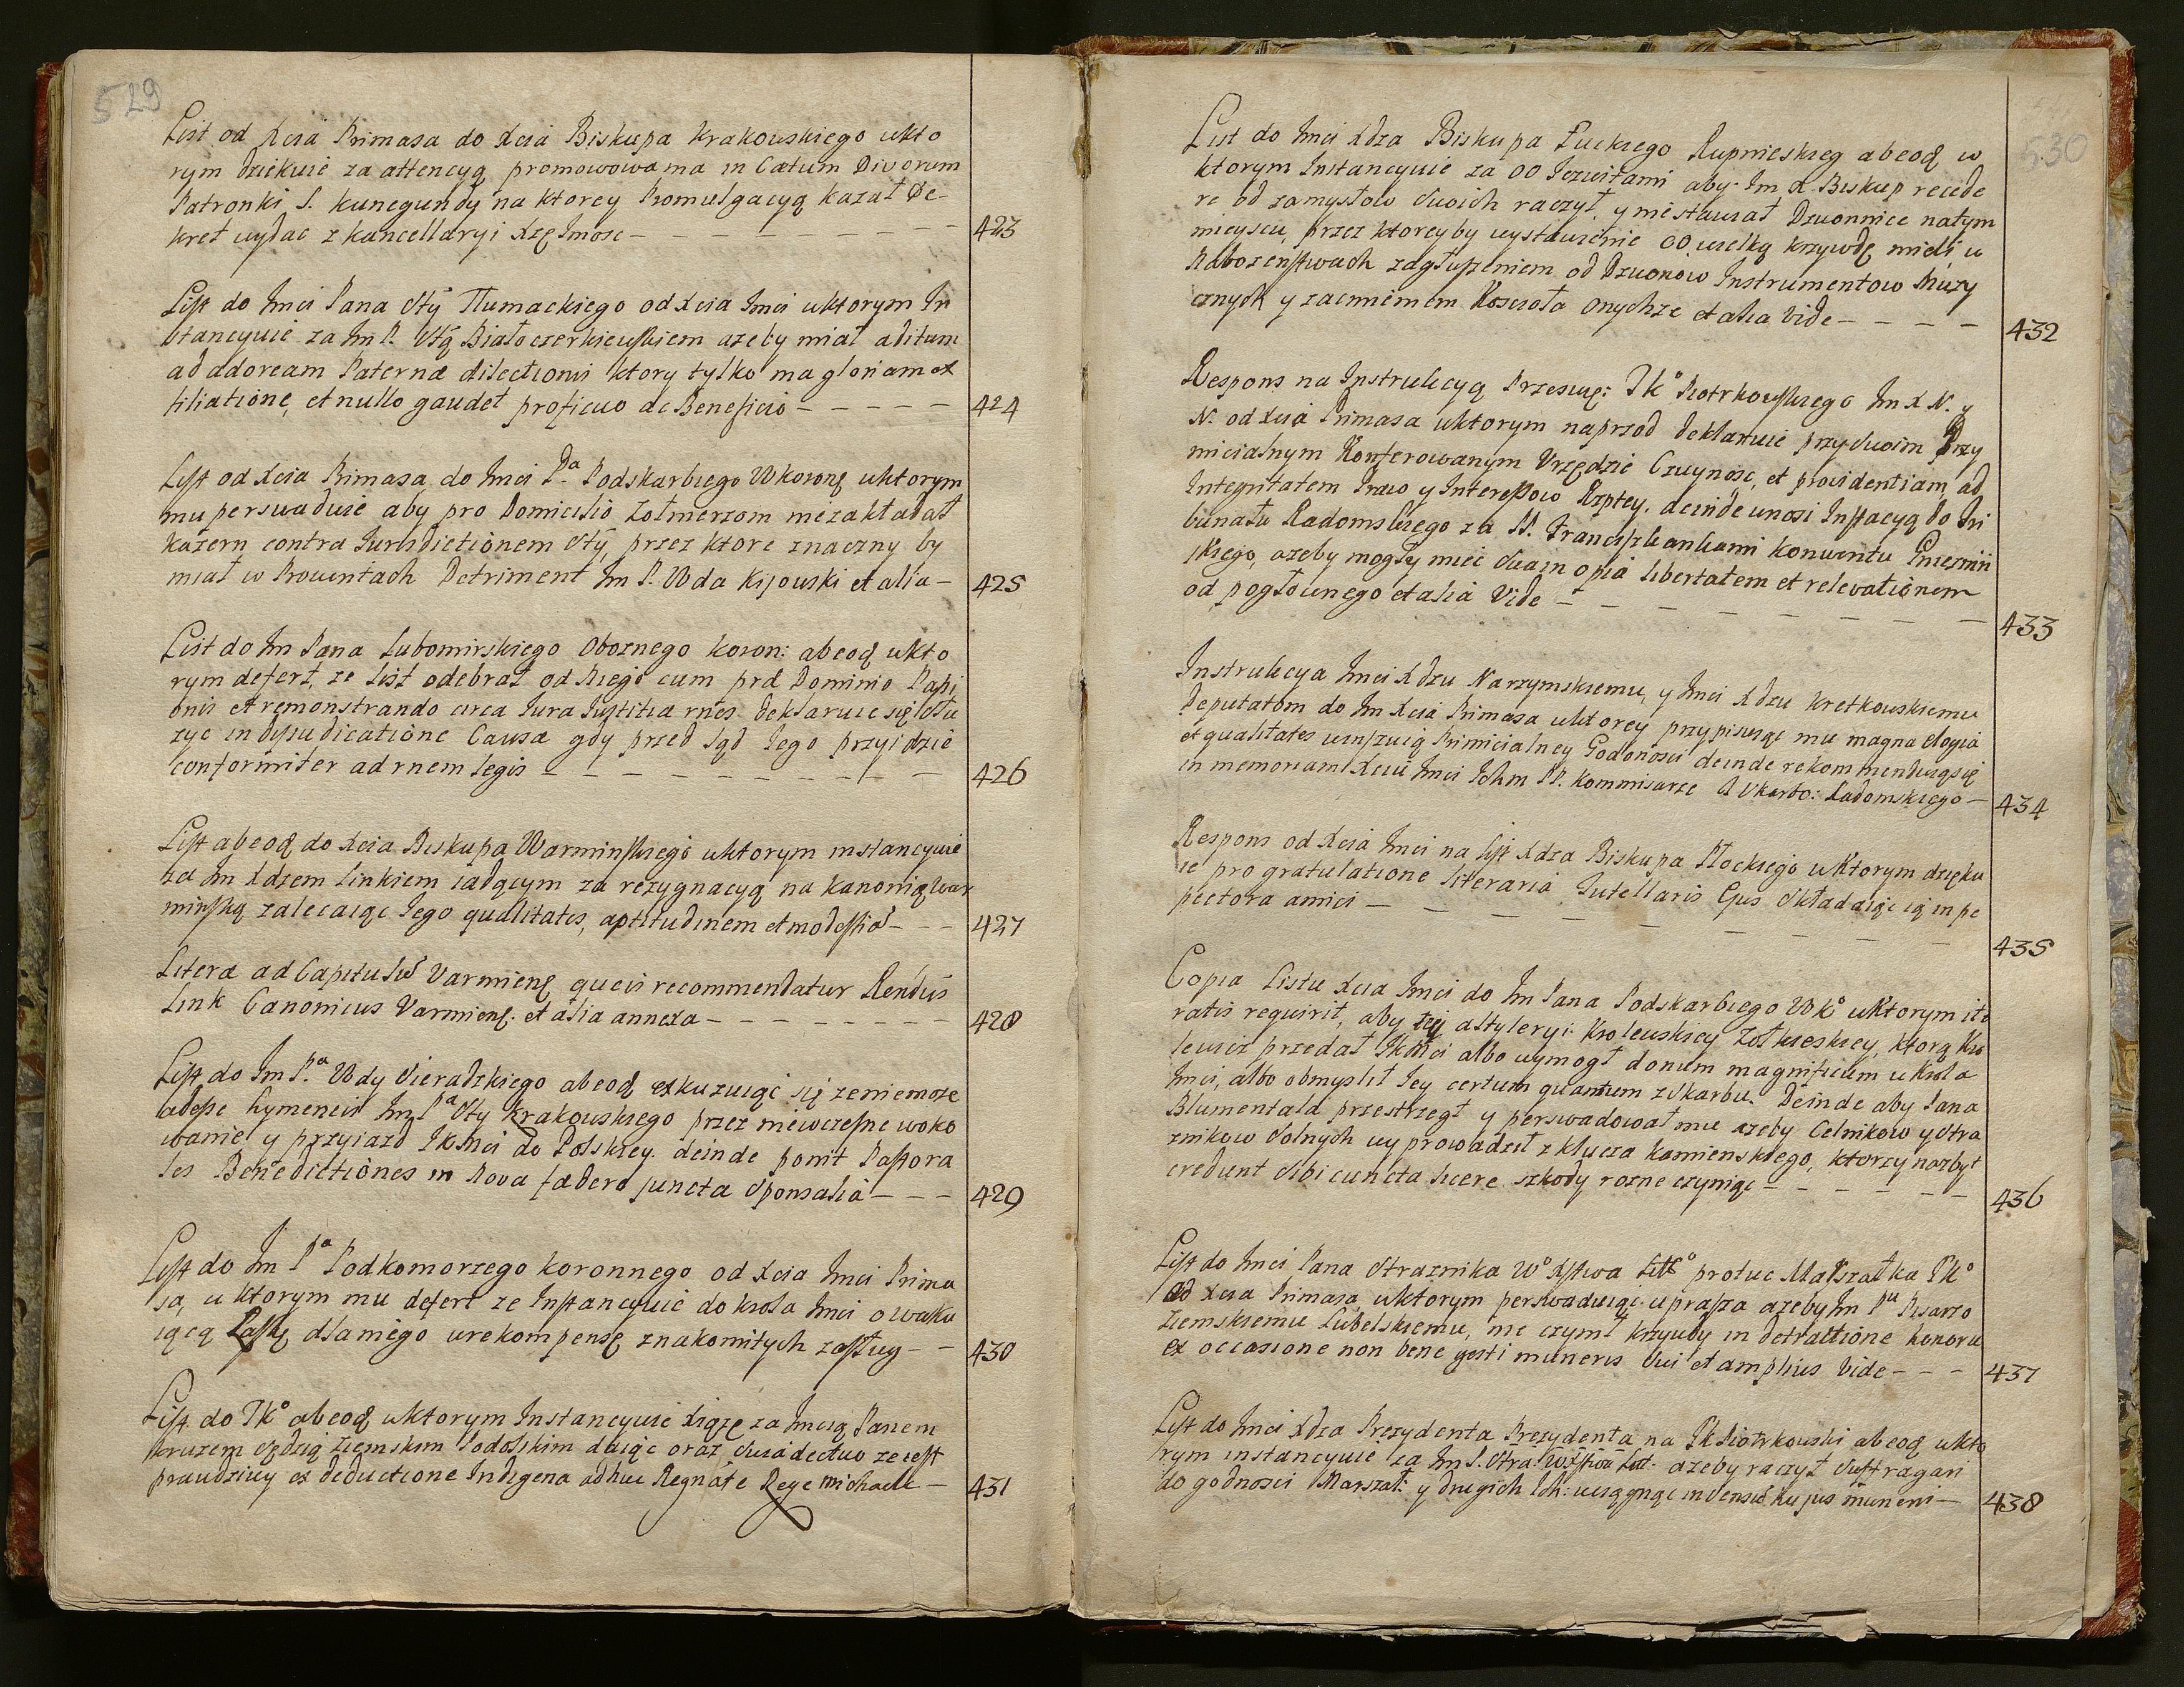 529
List od Xcia Primasa do Xcia Biskupa Krakowskiego wkto
rym dziekuie za attencyą promowowama in Cætum Divorum
Patronki S. Kunegundy na ktorey Promulgacyą kazał De-
kret wydac z kancellaryi Xzę Jmosc - 423
List do Jmci Pana Stty Tlumackiego od Xcia Jmci wktorym In
stancyuie za Jm P. Sttą Białoczerkiewskiem azeby miał aditum
ad adoream Paternæ dilectionis ktory tylko ma gloriam ex
filiatione, et nullo gaudet proficuo de Beneficio - 424
List od Xcia Primasa do Jmci Pa Podskarbiego W Koronę wktorym
mu perswaduie aby pro Domicilio Zołnierzom niezakładał
kazern contra Iurisdictionem Stty, przez ktore znaczny by
miał w Prowentach Detriment Jm P. Wda Kijowski et alia - 425
List do Jm Pana Lubomirskiego Oboznego koron: ab eoq wkto
rym defert, ze List odebrał od Niego cum præ Dominio Papi
onis et remonstrando circa Iura Iustitiæ rnes deklaruie się słu
zyc in dijudicatione Causæ gdy przed Sąd Jego przyidzie
conformiter ad rnem legis - 426
List ab eoq do Xcia Biskupa Warminskiego wktorym instancyuie
za Jm Xdzem Linkiem iadącym za rezygnacyą na kanonią War
minską zalecaiąc Jego qualitates, aptitudinem et modestiā - 427
Literæ ad Capitulū Varmienę queis recommendatur Rendus
Link Canonicus Varmienę. et alia annexa - 428
List do Jm Pa Wdy Sieradzkiego ab eoq exkuzuiąc się zeniemoze
adesse hymeneis Jmz Pa Stty Krakowskiego przez niewczesne woko
wanie y przyiazd JKMci do Polskiey. deinde ponit Pastora
les Benedictiones in Nova fædere juncta Sponsalia - 429
List do Jm Pa Podkomorzego koronnego od Xcia Jmci Prima
sa, w ktorym mu defert ze Instancyuie do krola Jmci o waku
iącą Laskę dlaniego wrekompensę znakomitych zasług - 430
List do Tko ab eoq wktorym Instancyuie Xiąze za Jmcią Panem
Kruzem Sędzią Ziemskim Podolskim daiąc oraz Swiadectwo ze iest
prawdziwy ex deductione Indigena adhuc Regnāte Rege Michaele - 431
530
List do Jmci Xdza Biskupa Łuckiego Rupnieskieg ab eoq w
ktorym Instancyuie za OO Jezuitami aby Jm X. Biskup recede
re od zamysłow Swoich raczył, y niestawiał Dzwonnice natym
mieyscu, przez ktorey by wystawienie OO wielką krzywdę mieli w
Nabozenstwach zagłuszeniem od Dzwonow Instrumentow Muzy
cznych y zacmieniem Koscioła onychze et alia Vide - 432
Respons na Instrukcyą Przeswię: Tko Piotrkowskiego Jm X N. y
N. od Xcia Primasa wktorym naprzod deklaruie przy Swoim Pry
micialnym Konferowanym Vrzędzie Czuynosc, et providentiam ad
Integritatem Praw y Interessow Rzptey. deinde wnosi Instacyą do Tri
bunału Radomskiego za SS. Franciszkankami konwentu Gniezniń
skiego, azeby mogły miec Suam opia libertatem et relevationem
od pogłownego et alia Vide - 433
Instrukcya Jmci Xdzu Narzymskiemu, y Jmci Xdzu Kretkowskiemu
Deputatom do Jm Xcia Primasa wktorey przypisuiąc mu magna elogia
et qualitates winszuią Primicialney Godnosci deinde rekommenduiąsię
in memoriam Xcia Jmci Ichm PP. Kommisarze Skarbo: Radomskiego - 434
Respons od Xcia Jmci na list Xdza Biskupa Płockiego wktorym dzięku
ie pro gratulatione literaria Tutellaris Ejus Składaiąc ią in pe
pectora amici - 435
Copia Listu Xcia Jmci do Jm Pana Podskarbiego WKo wktorym ite
ratis requirit, aby tęy altyleryi Krolewskiey Zołkieskiey, ktorą Kro
lewicz przedał JKMci albo wymogł donum magnificum u Krola
Jmci, albo obmyslił Jey certum quantum z Skarbu. Deinde aby Pana
Blumentala przestrzegł y perswadował mu azeby Celnikow y Stra
znikow Solnych wyprowadził z klucza Kamienskiego, ktorzy nazbyt
credunt Sibi cuncta licere szkody rozne czyniąc - 436
List do Jmci Pana Straznika Wo Xstwa Litto protuc Marszałka Tko
od Xcia Primasa, wktorym perswaduiąc uprasza azeby Jm Pu Pisarzo
Ziemskiemu Lubelskiemu, nie czynił krzywdy in detractione honoru
ex occasione non bene gesti muneris Sui et amplius Vide - 437
List do Jmci Xdza Prezydenta Prezydenta na Tk Piotrkowski ab eoq wkto
rym instancyuie za Jm P. Stra: W Xstwa Lit: azeby raczył Suffragari
do godnosci Marszał: y drugich Ich: wciągnąc in Sensū hujus muneris - 438